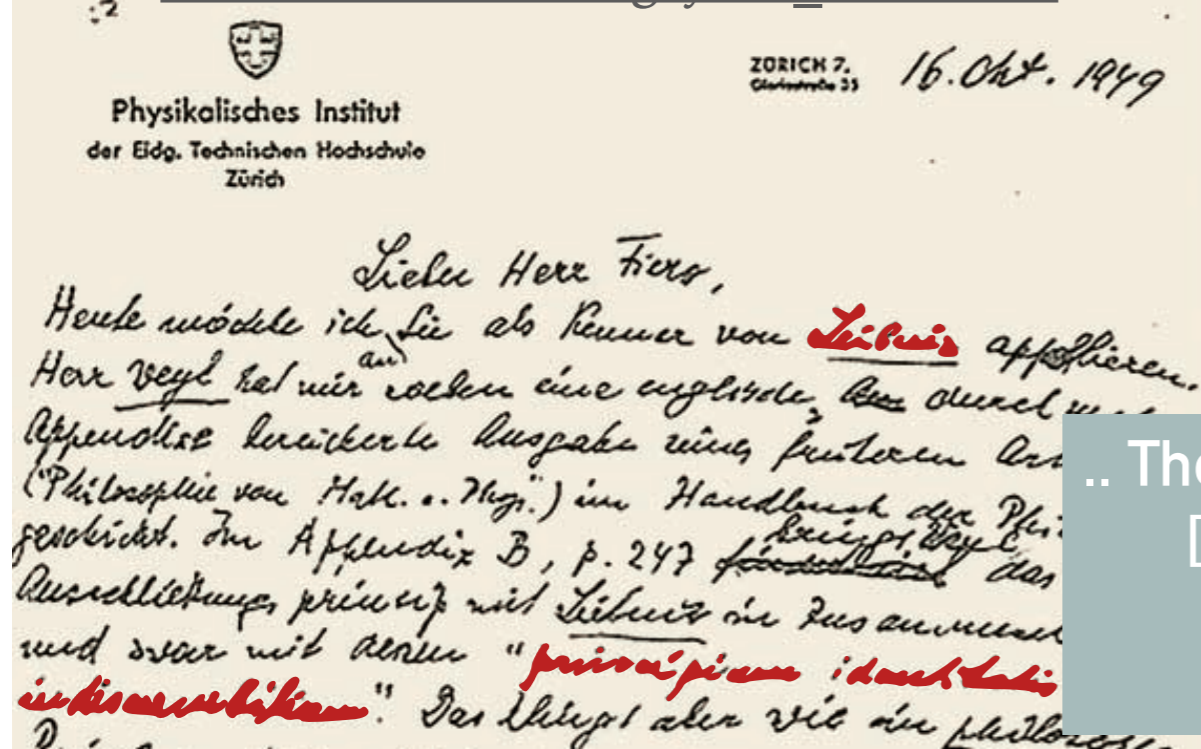 Physikalisches Institut
der Eidg. Technischen Hochschule
Zürich
ZÜRICH 7.
Gloriastraße 35
16. Okt. 1949
Lieber Herr Fierz,
Heute möchte ich Sie als Kenner von Leibniz appellieren.
an
Herr Weyl hat mir soeben eine englische, durch
Appendixe bereicherte Ausgabe seines früheren
("Philosophie von Math. u. Phys.") im Handbuch der Phi
geschickt. Im Appendix B, p. 247 bringt Weyl das
Ausschließungsprinzip mit Leibniz in Zusammen
und zwar mit dessen "principium identitatis
indiscernibilium". Das klingt aber wie ein philoso
.. The
[